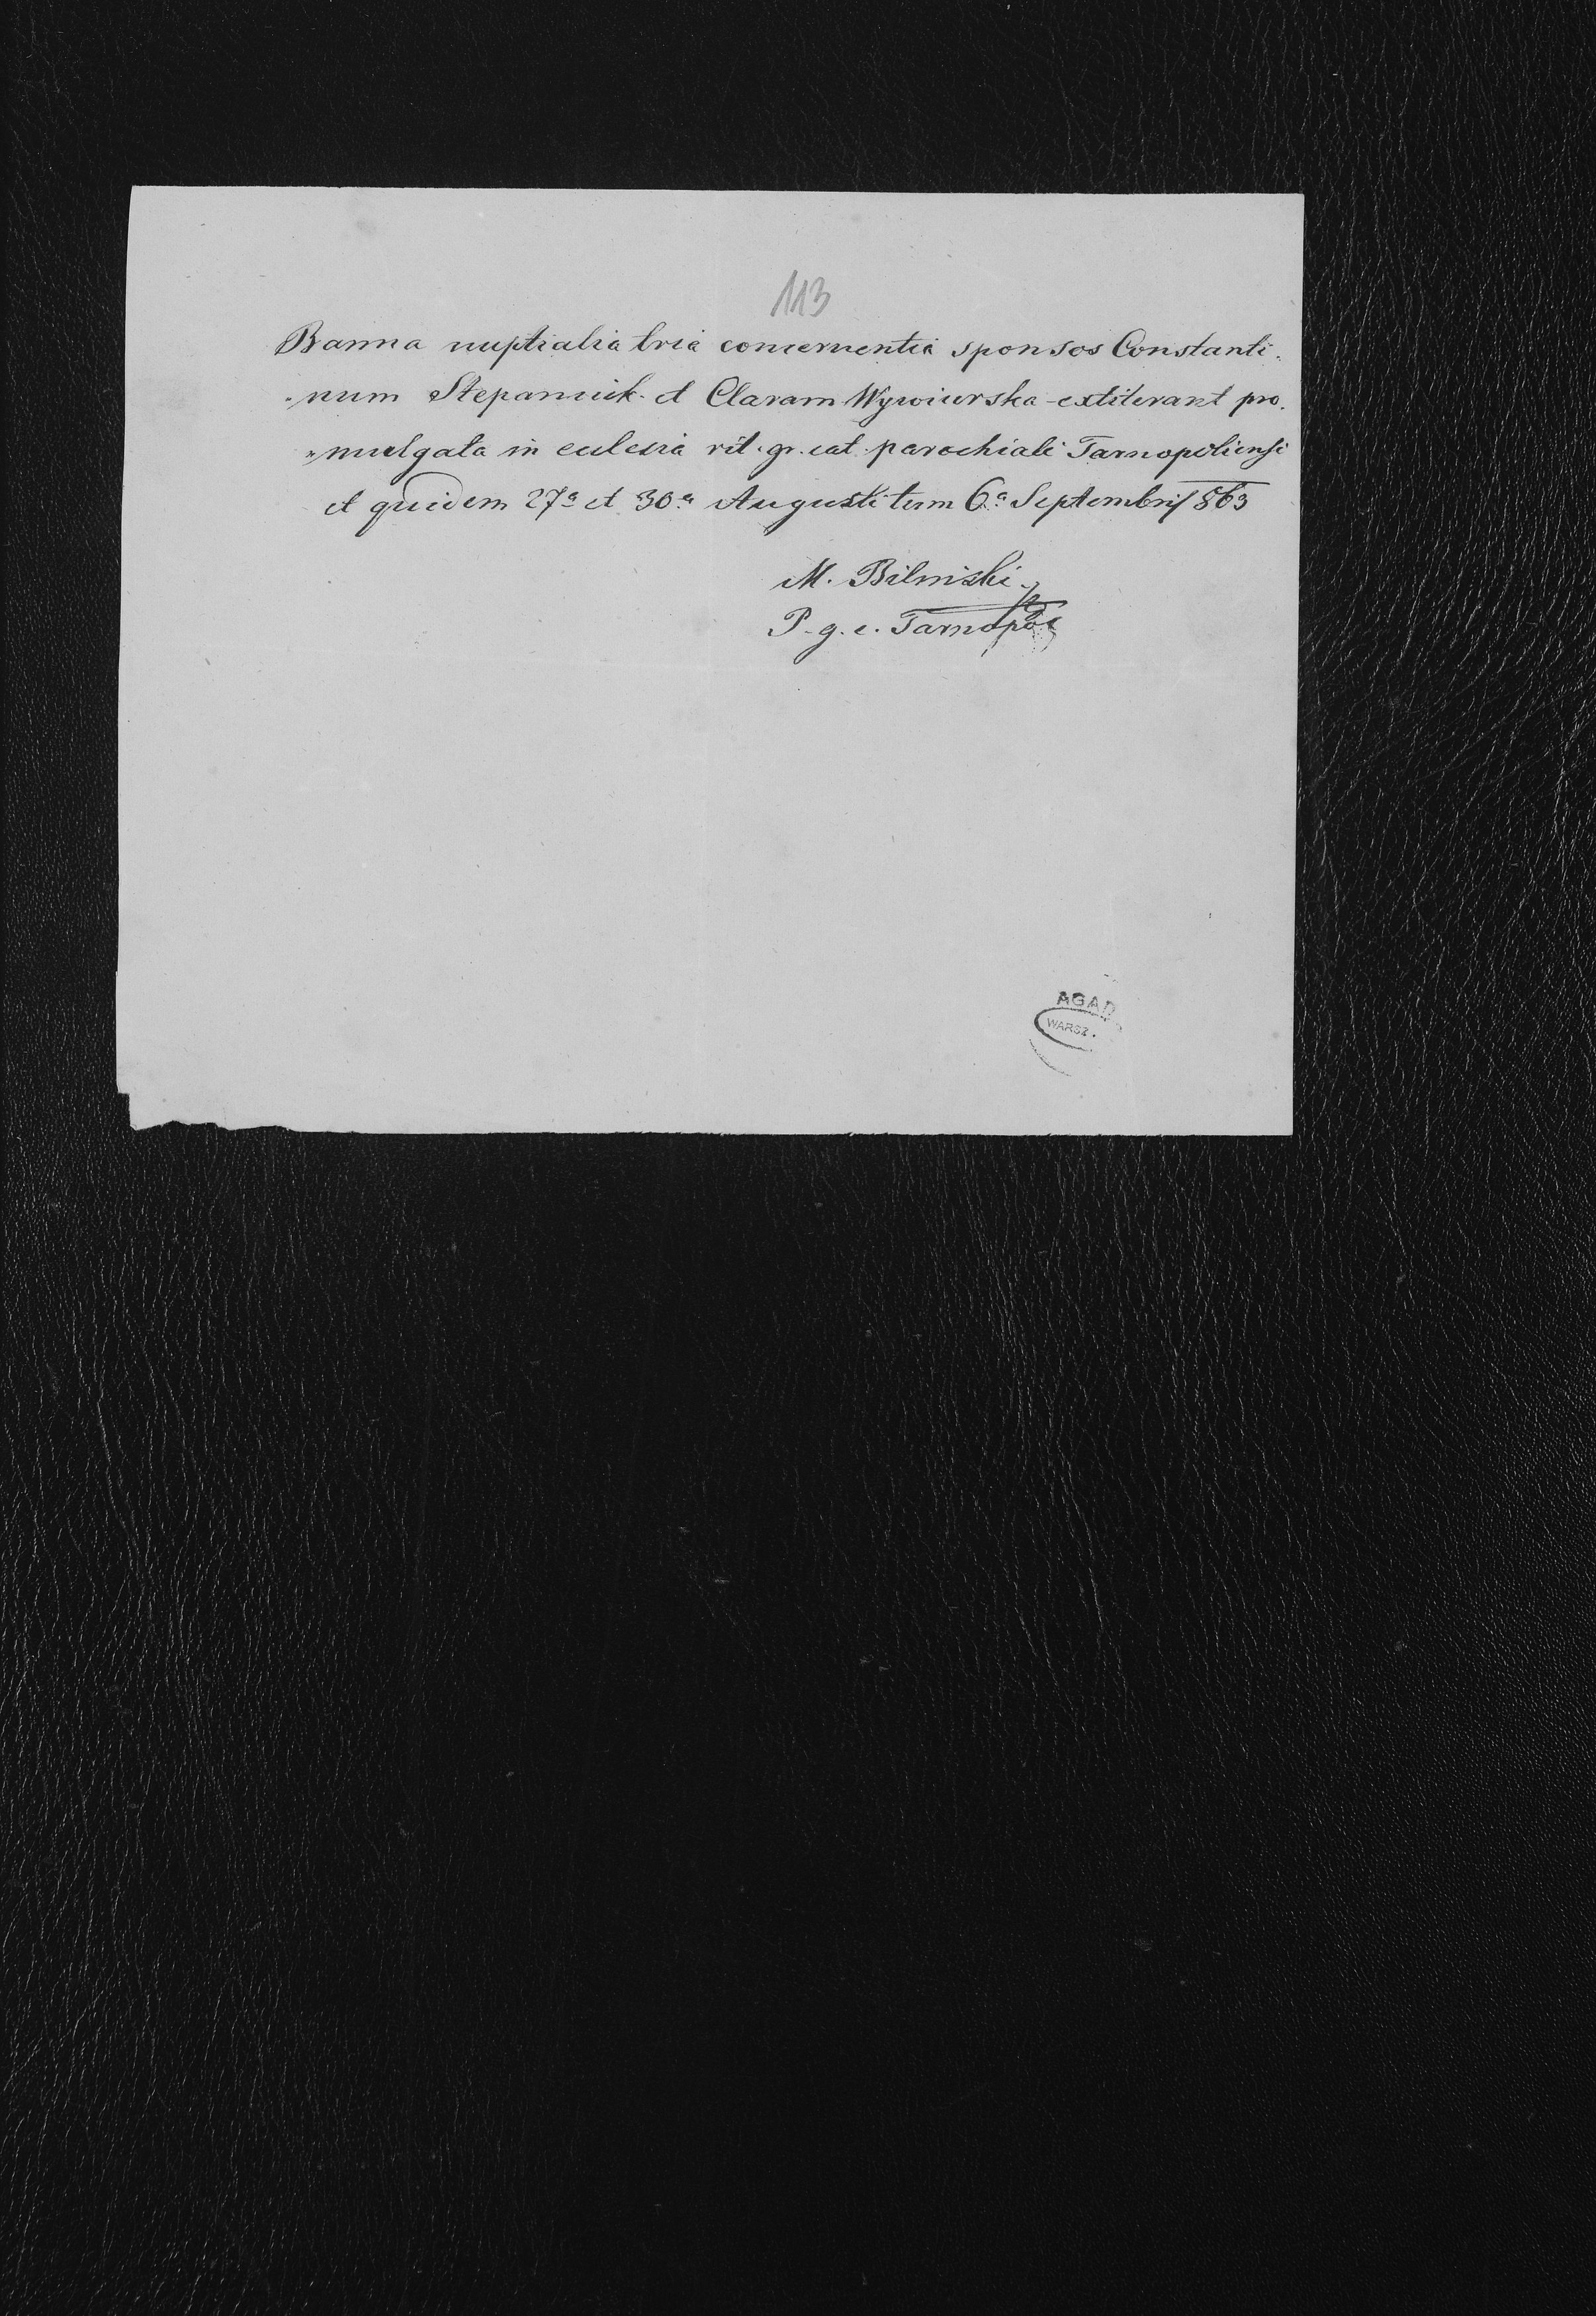 113
Banna nuptialia tria concernentia sponsos Constanti-
-num Stepaniuk et Claram Wywiurska extiterant pro-
-mulgata in eclesia rit. gr. cat. parochiali Tarnopoliensi
et quidem 27ª et 30ª Augusti tum 6ª Septembris 863
M. Bilinski
P. g. c. Tarnopol
AGAD
WARSZ.